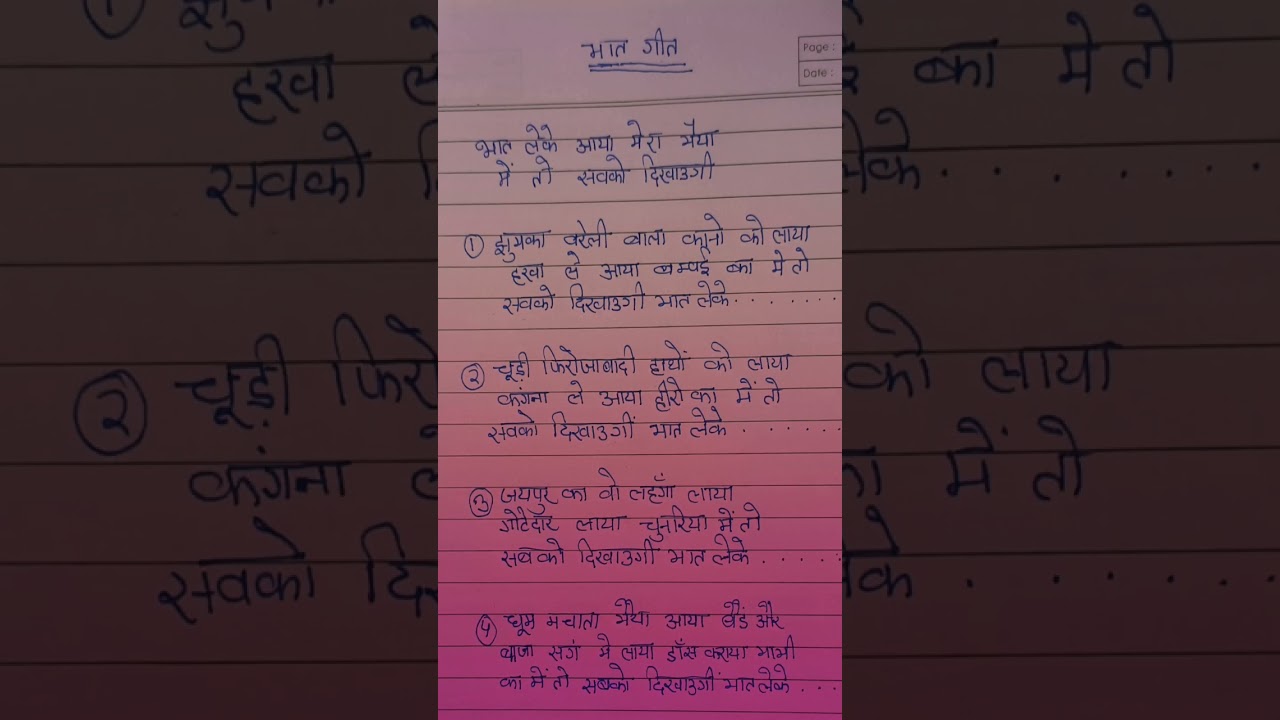 भात गीत
Page :
Date :
भात लेके आया मेरा भैया
में तो सवको दिखाउगी
① झुमका वरेली वाला कानो को लाया
हरवा ले आया बम्वई का मे तो
सवको दिखाउगी भात लेके . . . . . . .
② चूड़ी फिरोजाबादी हाथों को लाया
कंगना ले आया हीरो का में तो
सवको दिखाउगीं भात लेके . . . . . .
③ जयपुर का वो लहँगा लाया
गोटेदार लाया चुनरिया में तो
सबको दिखाउगी भात लेके . . . . .
④ धूम मचाता भैया आया बैंड और
बाजा संग मे लाया डाँस कराया भाभी
का में तो सबको दिखाउगीं भात लेके . . .